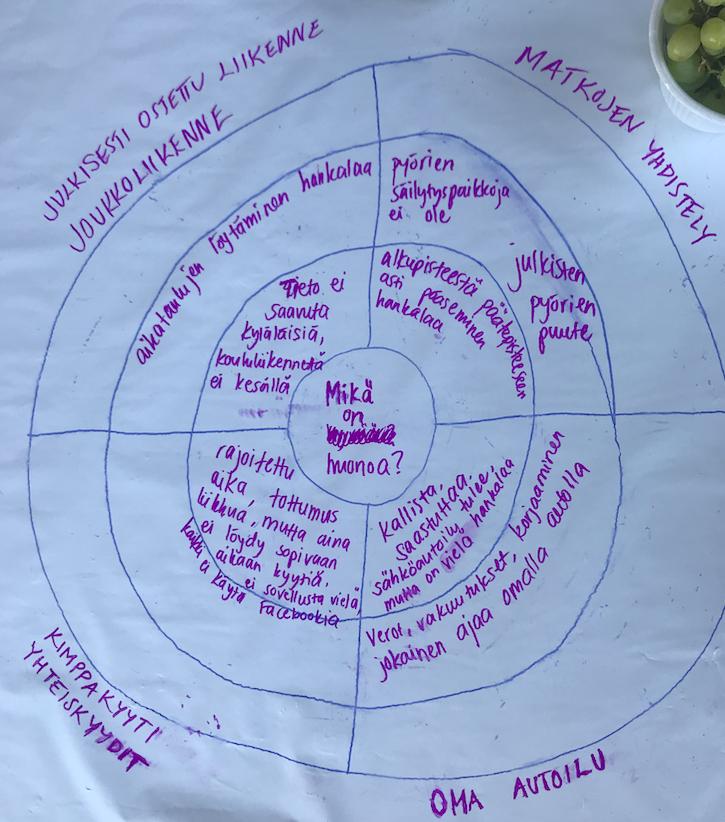 JULKISESTI OSTETTU LIIKENNE
JOUKKOLIIKENNE
MATKOJEN YHDISTELY
aikataulujen löytäminen hankalaa
pyörien
säilytyspaikkoja
ei ole
julkisten
pyörien
puute
Tieto ei
saavuta
kyläläisiä,
koululiikennettä
ei kesällä
alkupisteestä päätepisteeseen
asti pääseminen
hankalaa
Mikä
on
huonoa?
rajoitettu
aika, tottumus
liikkua, mutta aina
ei löydy sopivaan
aikaan kyytiä,
ei sovellusta vielä,
kaikki ei käytä Facebookia
Kallista,
saastuttaa,
sähköautoilu tulee,
mutta on vielä hankalaa
Verot, vakuutukset, korjaaminen
jokainen ajaa omalla autolla
KIMPPAKYYTI
YHTEISKYYDIT
OMA AUTOILU